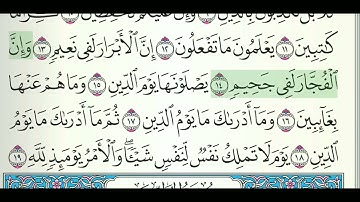 كَٰتِبِينَ ١١ يَعْلَمُونَ مَا تَفْعَلُونَ ١٢ إِنَّ ٱلْأَبْرَارَ لَفِى نَعِيمٍ ١٣ وَإِنَّ
ٱلْفُجَّارَ لَفِى جَحِيمٍ ١٤ يَصْلَوْنَهَا يَوْمَ ٱلدِّينِ ١٥ وَمَا هُمْ عَنْهَا
بِغَآئِبِينَ ١٦ وَمَآ أَدْرَىٰكَ مَا يَوْمُ ٱلدِّينِ ١٧ ثُمَّ مَآ أَدْرَىٰكَ مَا يَوْمُ
ٱلدِّينِ ١٨ يَوْمَ لَا تَمْلِكُ نَفْسٌ لِّنَفْسٍ شَيْـًٔا وَٱلْأَمْرُ يَوْمَئِذٍ لِّلَّهِ ١٩